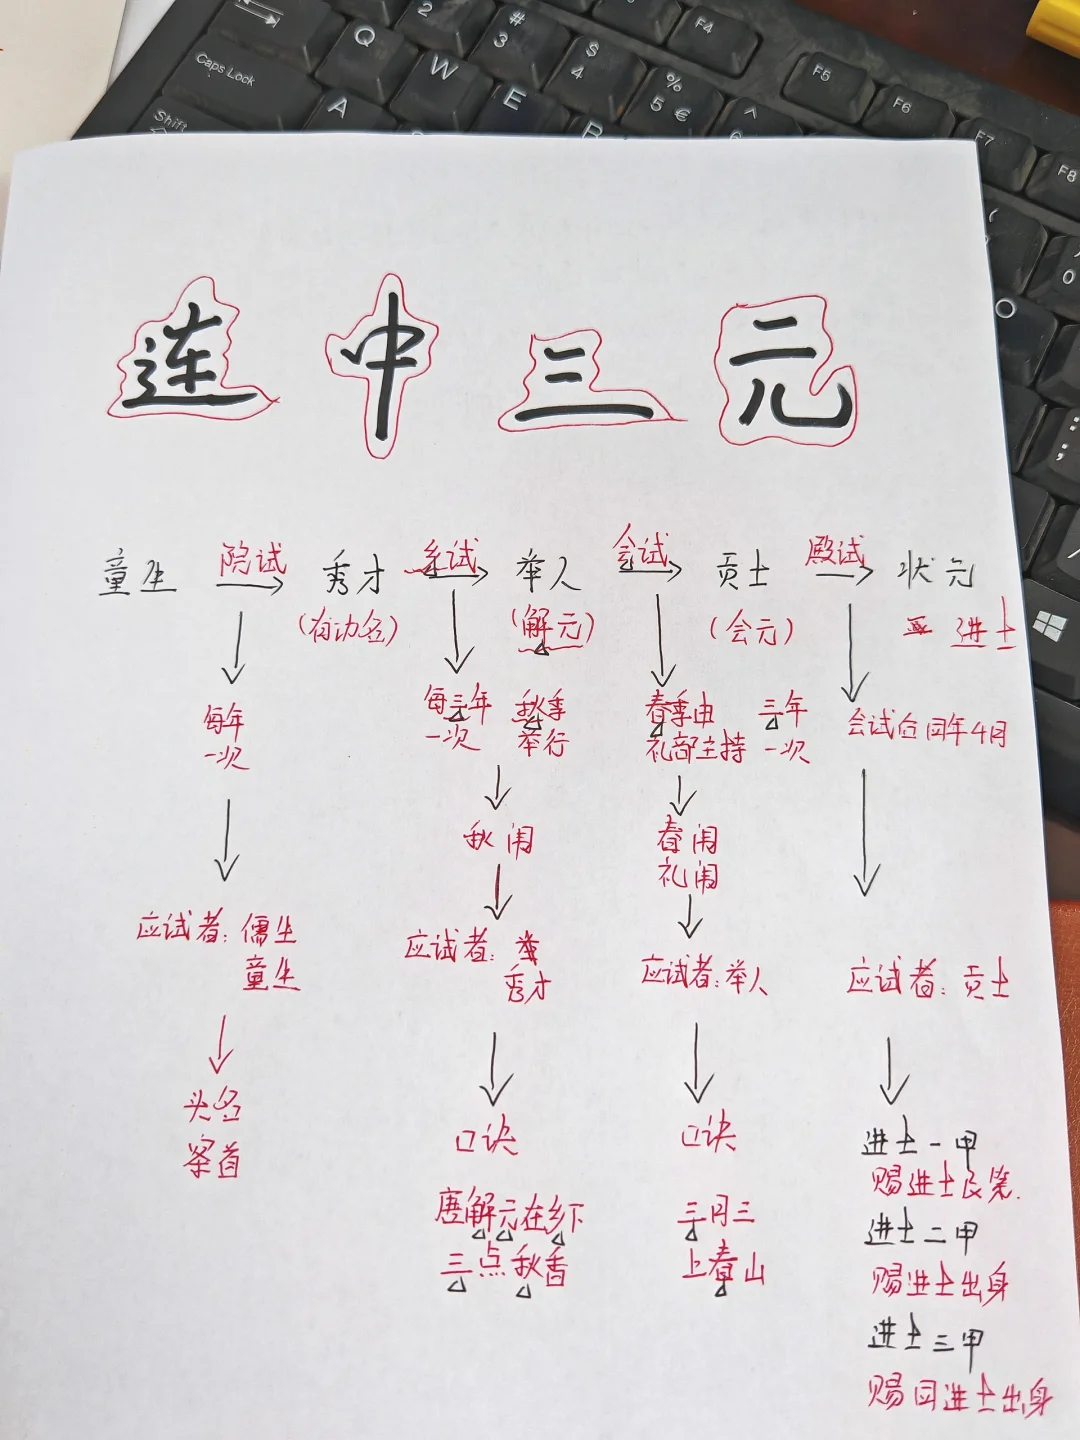 Q
W
E
A
Caps Lock
Shift
2
# 3
$ 4
% 5 €
F4
F5
F6
F7
F8
连中三元
童生 院试 秀才 乡试 举人 会试 贡士 殿试 状元
(有功名) (解元) (会元) 进士
每年 每三年 秋季 春季由 三年 会试后同年4月
一次 一次 举行 礼部主持 一次
秋闱 春闱
礼闱
应试者:儒生 应试者: 应试者:举人 应试者:贡士
童生 秀才
头名
案首
口诀 口诀
唐解元在乡下 三月三
三点秋香 上春山
进士一甲
赐进士及第.
进士二甲
赐进士出身
进士三甲
赐同进士出身